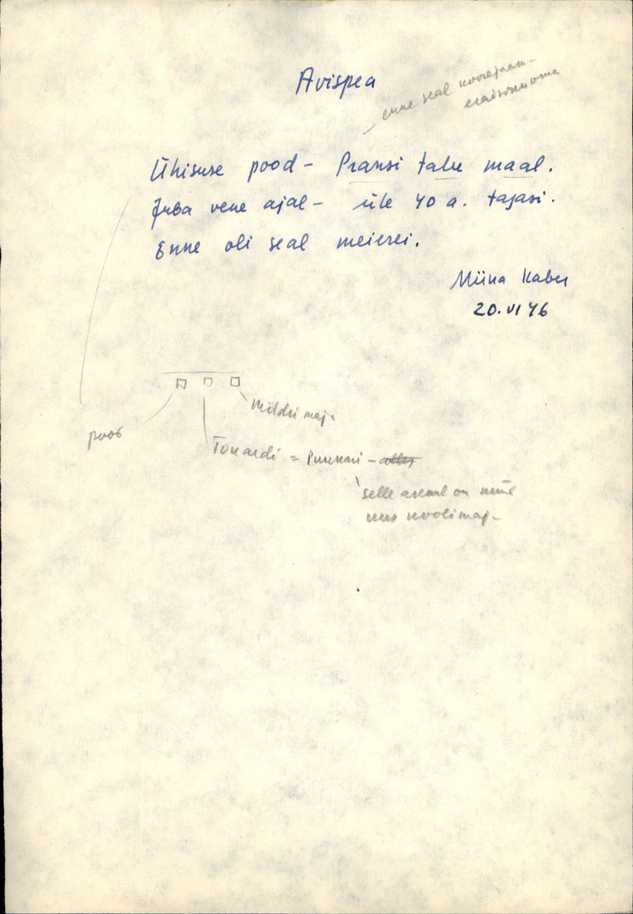 Avispea
enne seal koorejaam-
Ühisuse pood - Pransi talu maal.
Juba vene ajal - üle 40 a. tagasi.
Enne oli seal meierei.
Miina Kaber
20.VI 46
Möldri maja
pood
Tonardi =
selle asemel on
uus koolimaj.